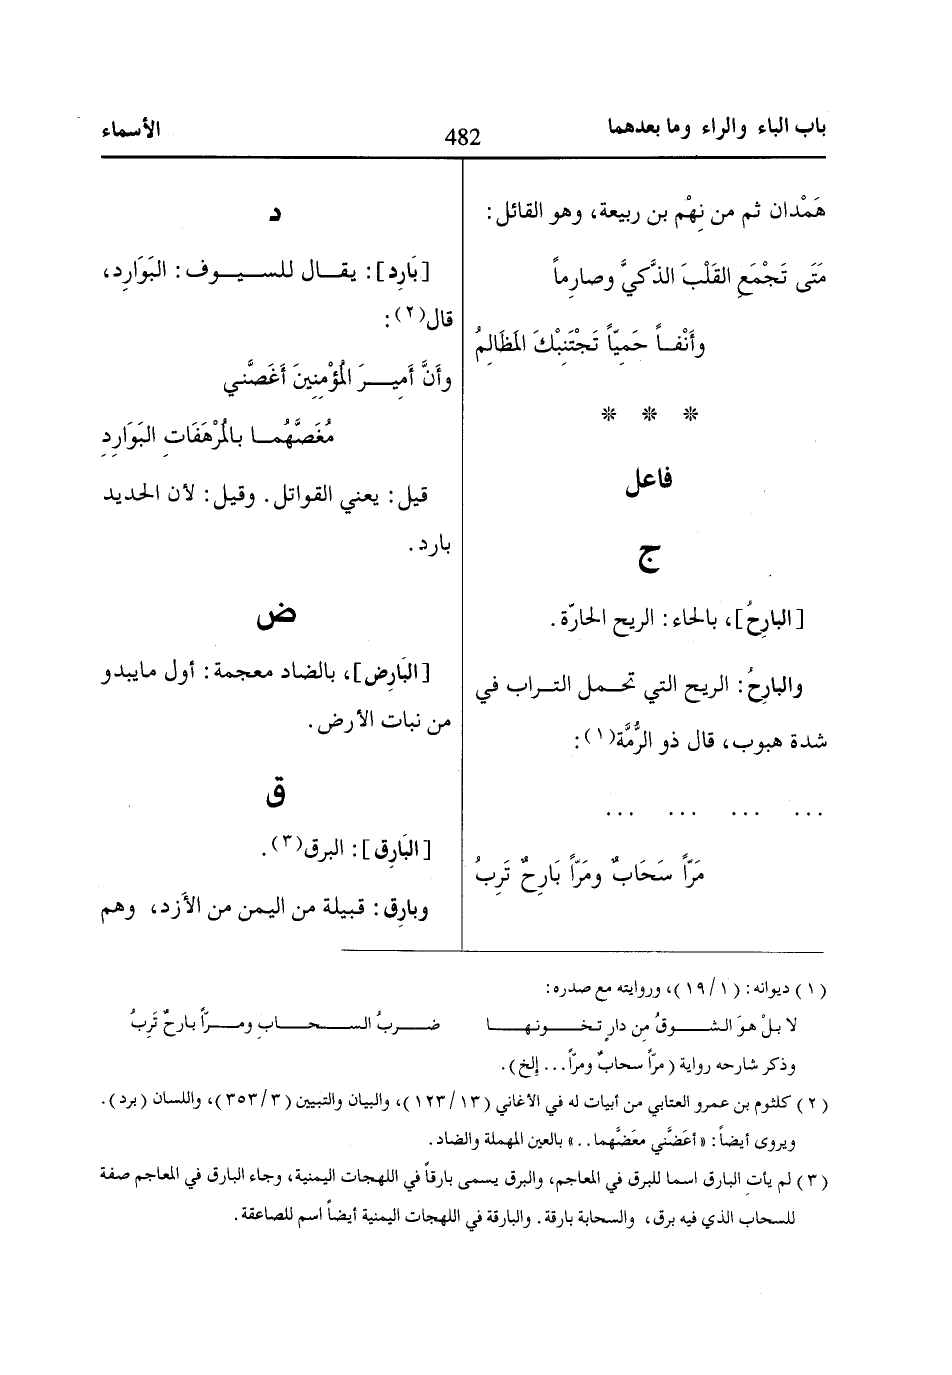 باب الباء والراء وما بعدهما
482
الأسماء
هَمْدان ثم من نِهْم بن ربيعة، وهو القائل:
مَتَى تَجْمَعِ القَلْبَ الذَّكيَّ وصارِماً
وأَنْفاً حَمِيّاً تَجْتَنِبْكَ المَظَالِمُ
* * *
فاعل
ج
[البارِحُ]، بالحاء: الريح الحارّة.
والبارِحُ: الريح التي تحمل التراب في
شدة هبوب، قال ذو الرُّمَّة(١):
... ... ... ...
مَرّاً سَحَابٌ ومَرّاً بَارِحٌ تَرِبُ
د
[بَارِد]: يقال للسيوف: البَوَارِد،
قال(٢):
وأَنَّ أَمِيرَ المُؤْمِنِينَ أَغَصَّني
مُغَصَّهُما بالمُرْهَفَاتِ البَوَارِدِ
قيل: يعني القواتل. وقيل: لأن الحديد
بارد.
ض
[البَارِض]، بالضاد معجمة: أول مايبدو
من نبات الأرض.
ق
[البَارِق]: البرق(٣).
وبارِق: قبيلة من اليمن من الأَزد، وهم
(١) ديوانه: (١/ ١٩)، وروايته مع صدره:
لا بلْ هوَ الشوقُ مِن دارٍ تخونها ضربُ السحابِ ومرّاً بارحٌ تَرِبُ
وذكر شارحه رواية (مرّاً سحابٌ ومرّاً... إلخ).
(٢) كلثوم بن عمرو العتابي من أبيات له في الأغاني (١٣/ ١٢٣)، والبيان والتبيين (٣/ ٣٥٣)، واللسان (برد).
ويروى أيضاً: «أعَضَّني معَضَّهما..» بالعين المهملة والضاد.
(٣) لم يأت البارق اسما للبرق في المعاجم، والبرق يسمى بارقاً في اللهجات اليمنية، وجاء البارق في المعاجم صفة
للسحاب الذي فيه برق، والسحابة بارقة. والبارقة في اللهجات اليمنية أيضاً اسم للصاعقة.